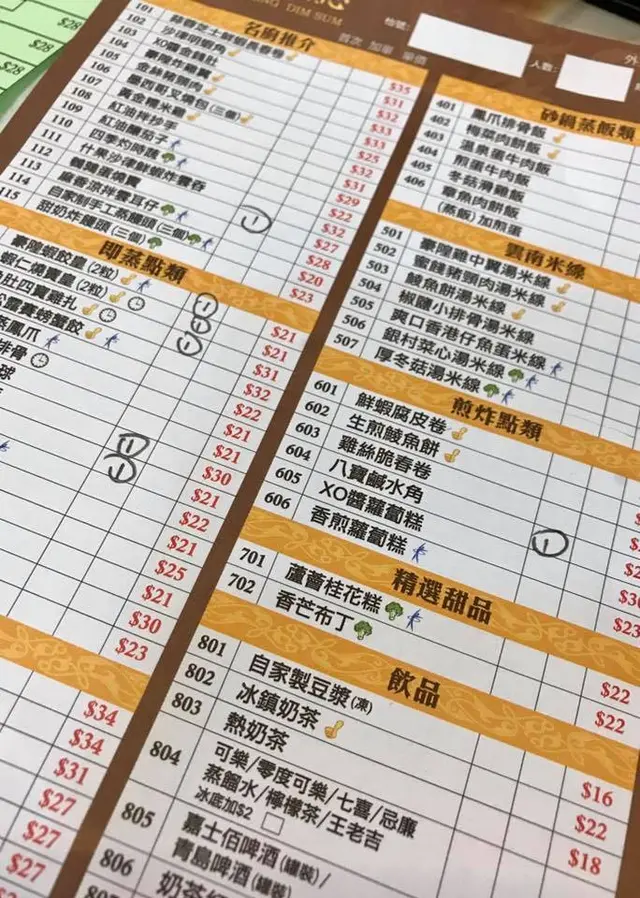 $28
$28
$28
DIM SUM
檯號:
人數:
外
名廚推介
首次 加單 單價
101
102
103
104
105
106
107
108
109
110
111
112
113
114
115
沙律明蝦角
XO醬金錢肚
金絲豬腸肉
墨西哥叉燒包(三個)
黃金糯米雞
紅油拌抄手
紅油腰茄子
四季灼時蔬
什果沙律鮮蝦炸雲吞
鵪鶉蛋燒賣
麻香涼拌雲耳仔
自家制手工蒸饅頭(三個)
甜奶炸饅頭(三個)
$35
$31
$32
$33
$33
$25
$32
$31
$29
$22
$32
$27
$28
$20
$23
即蒸點類
豪陞蝦餃皇(2粒)
蝦仁燒賣皇(2粒)
肚四寶雞扎
雪賽螃蟹餃
蒸鳳爪
排骨
球
$21
$21
$31
$32
$22
$21
$21
$30
$21
$22
$21
$25
$21
$30
$23
$34
$34
$31
$27
$27
$27
砂鍋蒸飯類
401 鳳爪排骨飯
402 梅菜肉餅飯
403 溫泉蛋牛肉飯
404 煎蛋牛肉飯
405 冬菇滑雞飯
406 章魚肉餅飯
(蒸飯)加煎蛋
雲南米線
501 豪隍雞中翼湯米線
502 蜜餞豬頸肉湯米線
503 鯪魚餅湯米線
504 椒鹽小排骨湯米線
505 爽口香港仔魚蛋米線
506 銀村菜心湯米線
507 厚冬菇湯米線
煎炸點類
601 鮮蝦腐皮卷
602 生煎鯪魚餅
603 雞絲脆春卷
604 八寶鹹水角
605 XO醬蘿蔔糕
606 香煎蘿蔔糕
$23
精選甜品
701 蘆薈桂花糕 $22
702 香芒布丁 $22
飲品
801 自家製豆漿(凍) $16
802 冰鎮奶茶 $22
803 熱奶茶 $18
804 可樂/零度可樂/七喜/忌廉
蒸餾水/檸檬茶/王老吉
冰底加$2
805 嘉士伯啤酒(罐裝)/
青島啤酒(罐裝)
806 奶茶
807